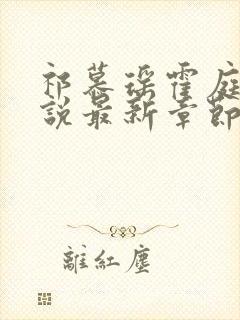 祁慕瑶霍庭
说最新章節
離紅塵